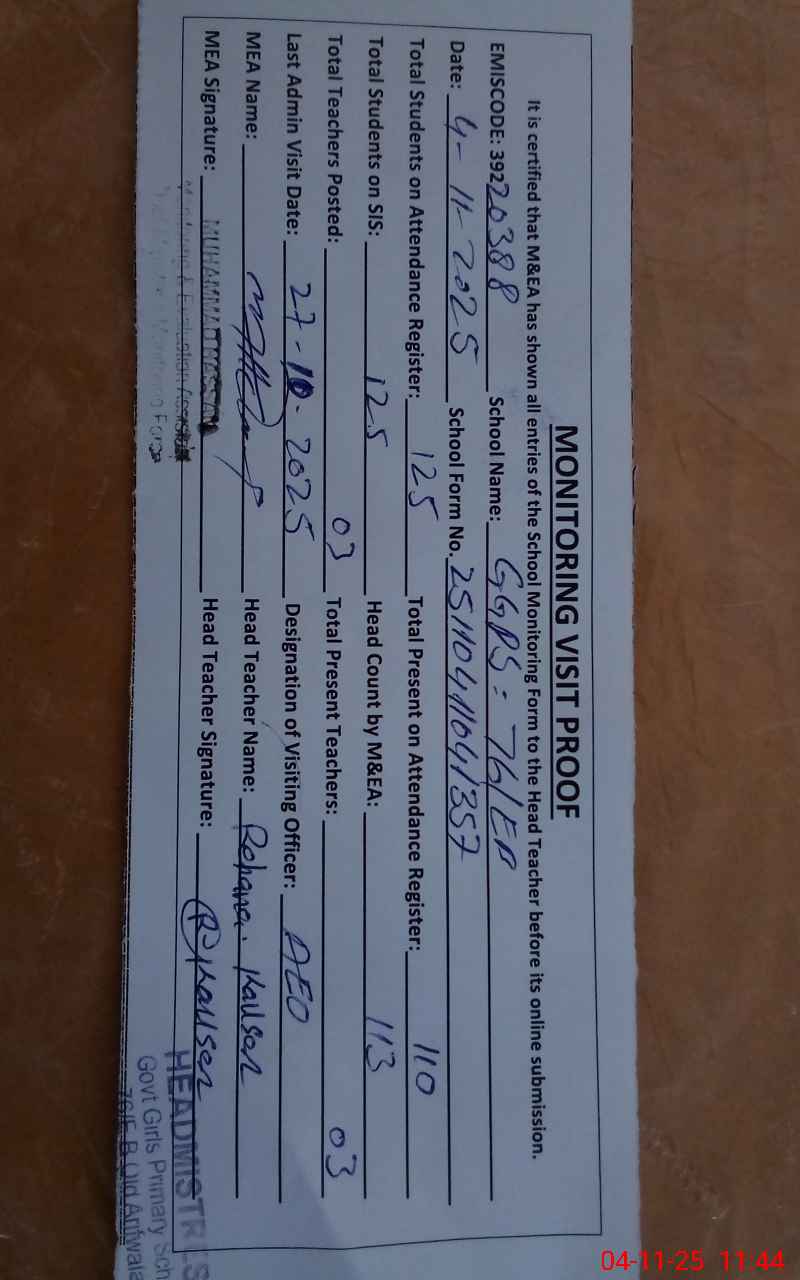 MONITORING VISIT PROOF
It is certified that M&EA has shown all entries of the School Monitoring Form to the Head Teacher before its online submission.
EMISCODE: 39220388 School Name: GGPS: 76/EB
Date: 4-11-2025 School Form No. 25110411041357
Total Students on Attendance Register: 125 Total Present on Attendance Register: 110
Total Students on SIS: 125 Head Count by M&EA: 113
Total Teachers Posted: 03 Total Present Teachers: 03
Last Admin Visit Date: 27-10-2025 Designation of Visiting Officer: AEO
MEA Name: Head Teacher Name: Rehana Kausar
MEA Signature: MUHAMMAD Head Teacher Signature: (R) Kausar
Monitoring & Evaluation Assistant
Monitoring Force
HEADMISTRESS
Govt Girls Primary Sch
76/E.B Old Arifwala
04-11-25 11:44